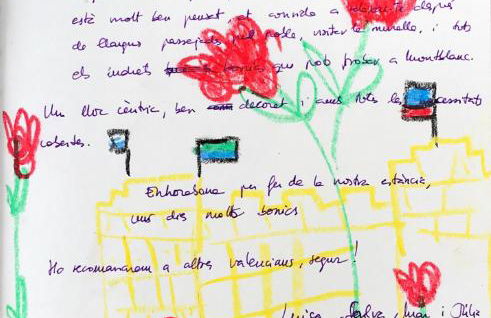 està molt ben pensat et convida a relaxar-te després
de llargues passejades pel poble, visitar la muralla, i tots
els indrets bonics que pots trobar a Montblanc.
Un lloc cèntric, ben decorat i amb totes les necessitats
cobertes.
Enhorabona per fer de la nostra estància,
uns dies molts bonics
Ho recomanarem a altres valencians, segur!
Luisa, Salva, Joan i